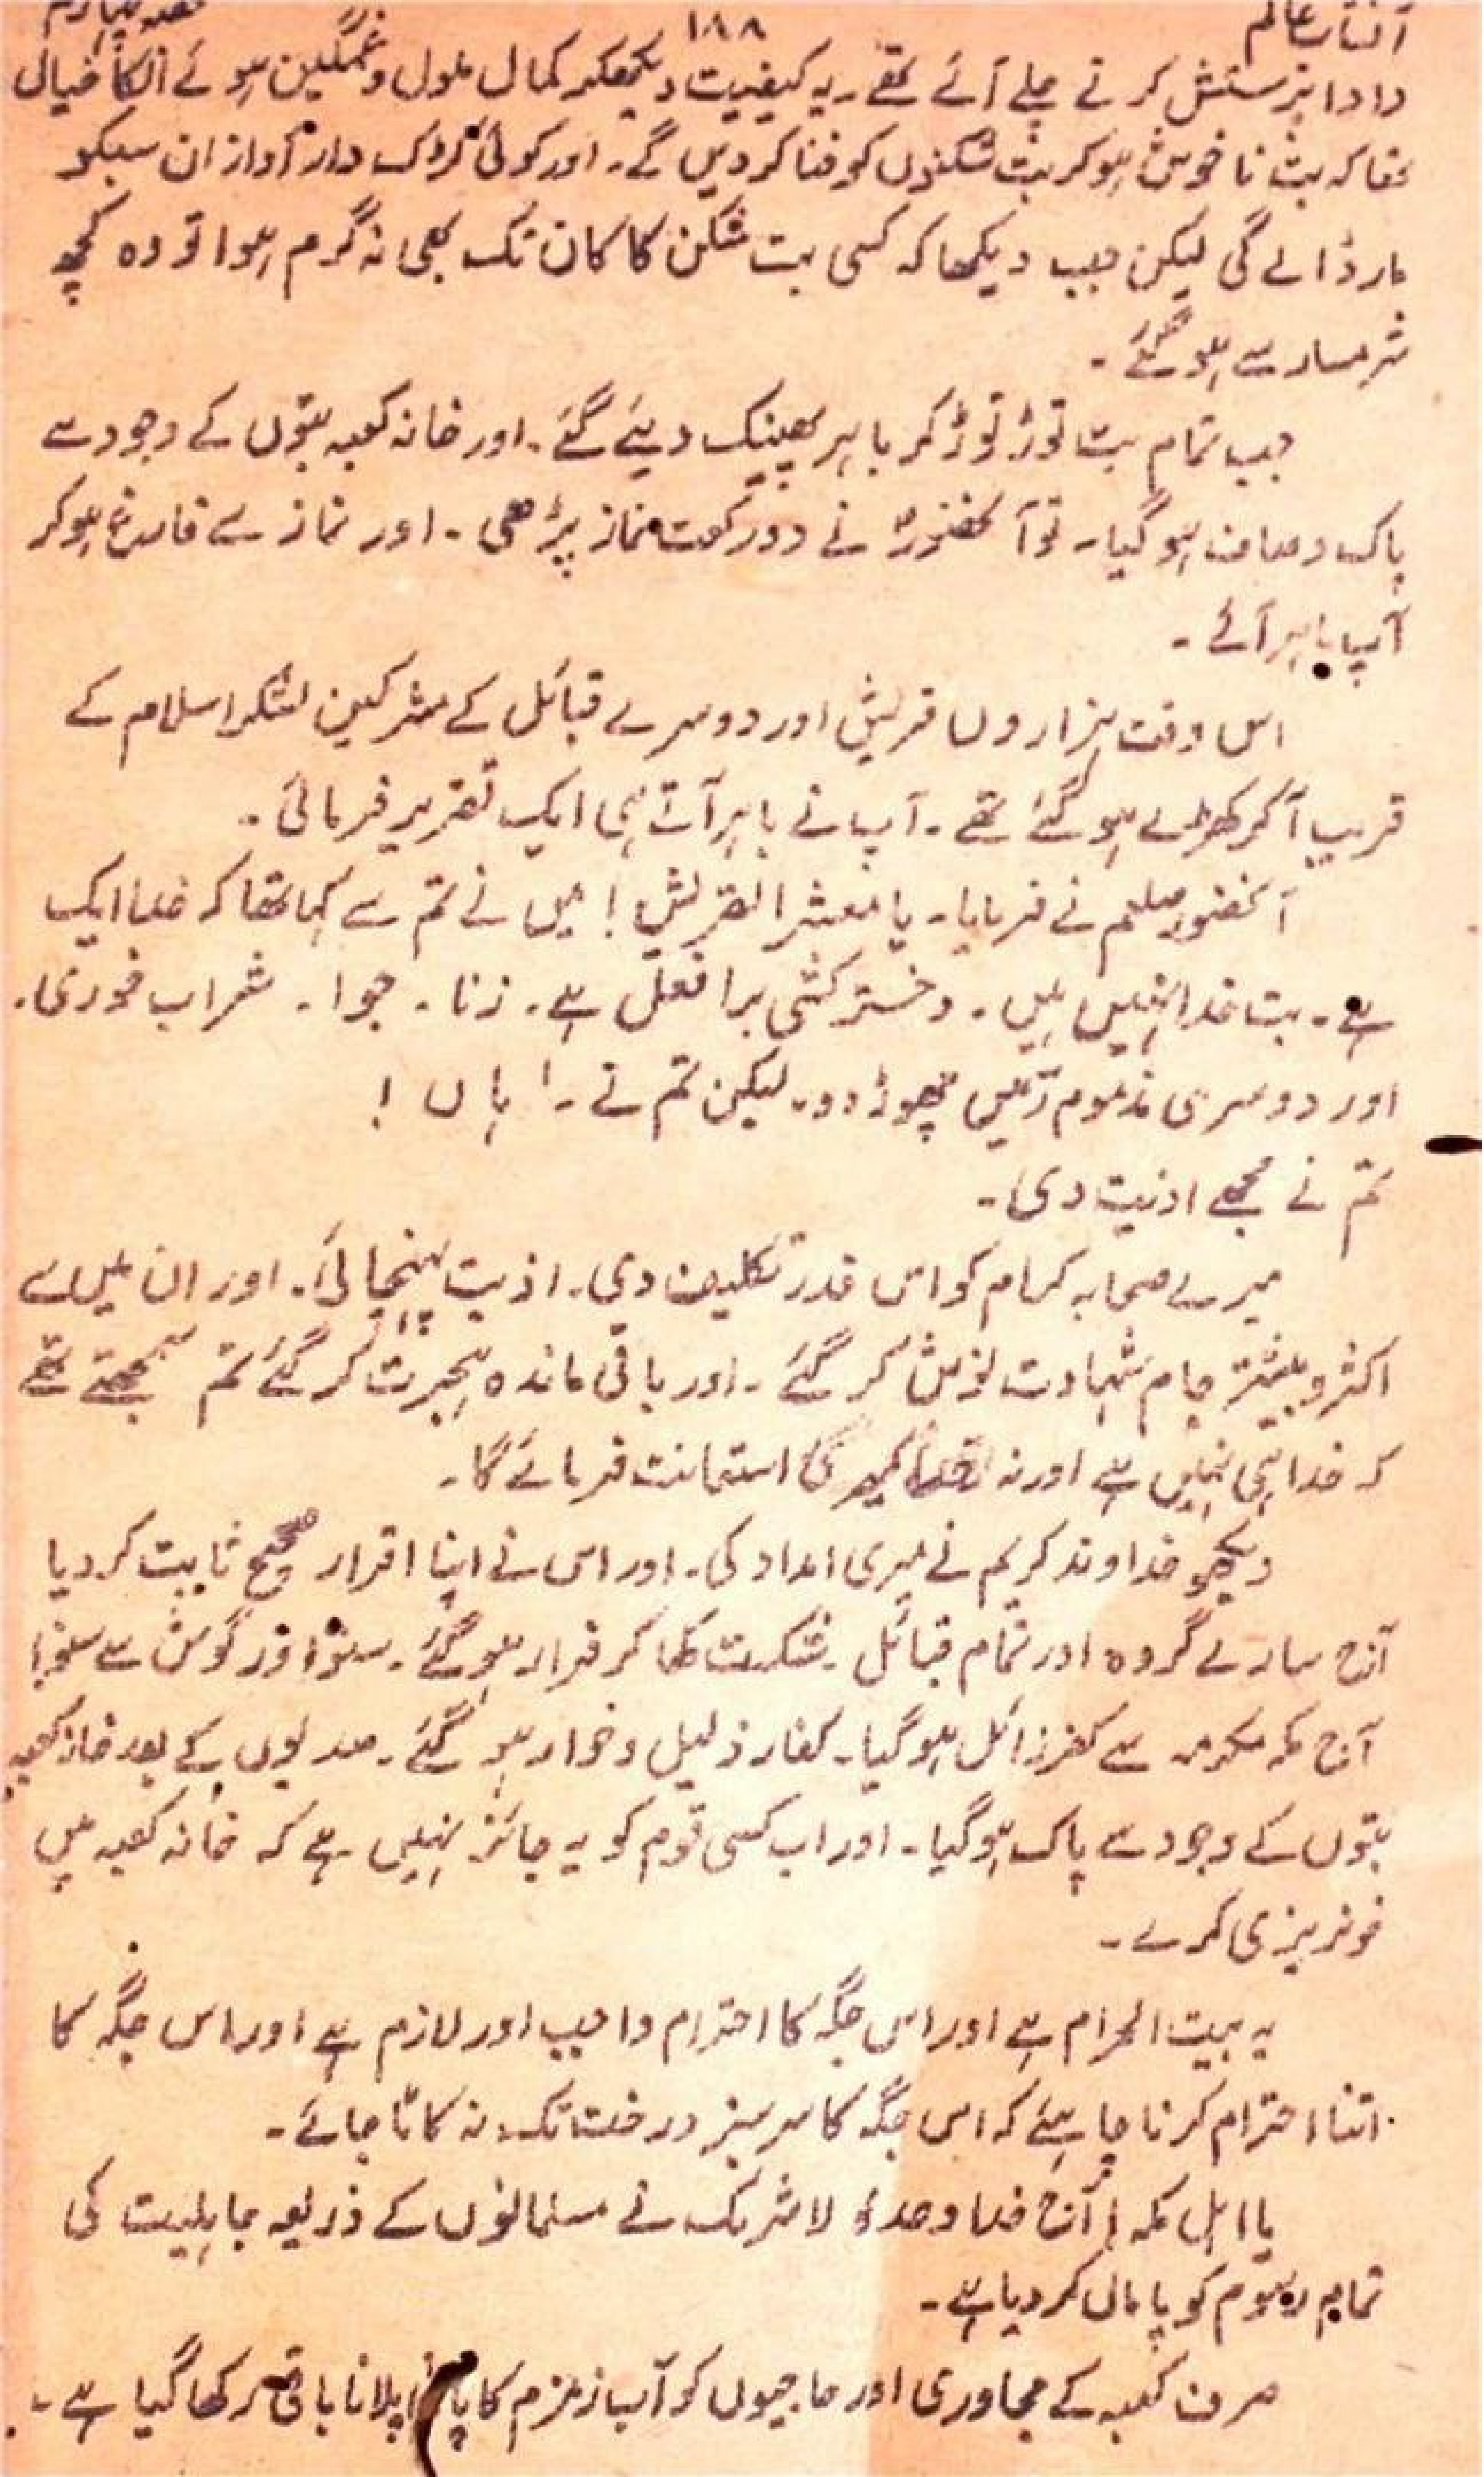 آفتاب عالم ۱۸۸ حصہ چہارم
دادا پرستش کرتے چلے آئے تھے۔ یہ کیفیت دیکھکر کمال ملول و غمگین ہوئے انکا خیال
تھا کہ بت نا خوش ہو کر بت شکنوں کو فنا کر دیں گے۔ اور کوئی کڑک دار آواز ان سبکو
مار ڈالے گی لیکن جب دیکھا کہ کسی بت شکن کا کان تک بھی نہ گرم ہوا تو وہ کچھ
شرمسار سے ہو گئے۔
جب تمام بت توڑ توڑ کر باہر پھینک دیئے گئے۔ اور خانہ کعبہ بتوں کے وجود سے
پاک و صاف ہو گیا۔ تو آنحضورؐ نے دو رکعت نماز پڑھی۔ اور نماز سے فارغ ہو کر
آپ باہر آئے۔
اس وقت ہزاروں قریش اور دوسرے قبائل کے مشرکین لشکر اسلام کے
قریب آ کر کھڑے ہو گئے تھے۔ آپ نے باہر آتے ہی ایک تقریر فرمائی۔
آنحضور صلعم نے فرمایا۔ یا معشر القریش! میں نے تم سے کہا تھا کہ خدا ایک
ہے۔ بت خدا نہیں ہیں۔ دختر کشی برا فعل ہے۔ زنا۔ جوا۔ شراب خوری۔
اور دوسری مذموم رسمیں چھوڑ دو۔ لیکن تم نے۔ ہاں!
تم نے مجھے اذیت دی۔
میرے صحابہ کرام کو اس قدر تکلیف دی۔ اذیت پہنچائی۔ اور ان میں سے
اکثر و بیشتر جام شہادت نوش کر گئے۔ اور باقی ماندہ ہجرت کر گئے تم سمجھتے تھے
کہ خدا ہی نہیں ہے اور نہ خدا میری استعانت فرمائے گا۔
دیکھو خداوند کریم نے میری امداد کی۔ اور اس نے اپنا اقرار صحیح ثابت کر دیا
آج سارے گروہ اور تمام قبائل شکست کھا کر فرار ہو گئے۔ سنو اور گوش سے سنو!
آج مکہ مکرمہ سے کفر زائل ہو گیا۔ کفار ذلیل و خوار ہو گئے۔ صدیوں کے بعد خانہ کعبہ
بتوں کے وجود سے پاک ہو گیا۔ اور اب کسی قوم کو یہ جائز نہیں ہے کہ خانہ کعبہ میں
خونریزی کرے۔
یہ بیت الحرام ہے اور اس جگہ کا احترام واجب اور لازم ہے اور اس جگہ کا
اتنا احترام کرنا چاہیئے کہ اس جگہ کا سرسبز درخت تک نہ کاٹا جائے۔
یا اہل مکہ! آج خدا وحدہٗ لا شریک نے مسلمانوں کے ذریعہ جاہلیت کی
تمام رسوم کو پامال کر دیا ہے۔
صرف کعبہ کے مجاوری اور حاجیوں کو آب زمزم کا پانی پلانا باقی رکھا گیا ہے۔